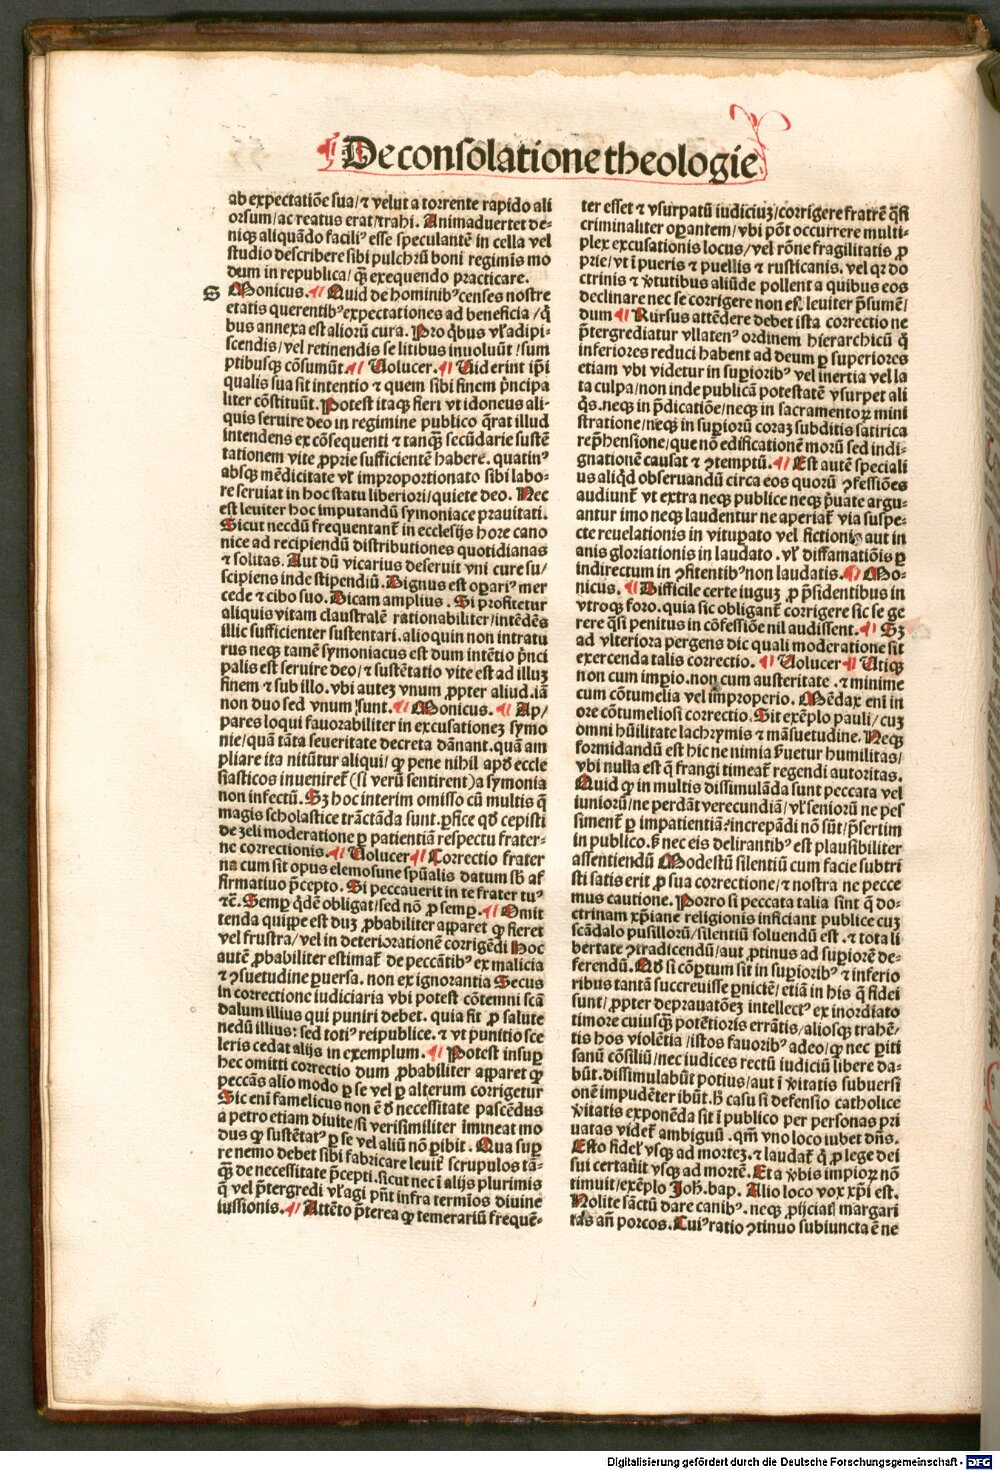 De consolatione theologie
ab expectatiōe sua/⁊ velut a torrente rapido ali
orsum/ac reatus erat/trahi. Animaduertet de-
niqꝫ aliquādo faciliꝰ esse speculantē in cella vel
studio describere sibi pulchrū boni regimīs mo
dum in republica/qꝫ̄ exequendo practicare.
S Monicus. ¶ Quid de hominibꝰ censes nostre
etatis querentibꝰ expectationes ad beneficia/q̄
bus annexa est aliorū cura. Pro q̄bus vl̄ adipi-
scendis/vel retinendis se litibus inuoluūt/sum
ptibusqꝫ cōsumūt. ¶ Volucer. ¶ Viderint ip̄i
qualis sua sit intentio ⁊ quem sibi finem p̄ncipa
liter cōstituūt. Potest itaqꝫ fieri vt idoneus ali-
quis seruire deo in regimine publico q̄rat illud
intendens ex cōsequenti ⁊ tanqꝫ̄ secūdarie sustē
tationem vite ꝓprie sufficientē habere. quatinꝰ
absqꝫ mēdicitate vl̄ improportionato sibi labo-
re seruiat in hoc statu liberiori/quiete deo. Nec
est leuiter hoc imputandū symoniace prauitati.
Sicut necdū frequentant̄ in ecclesijs hore cano
nice ad recipiendū distributiones quotidianas
⁊ solitas. Aut dū vicarius deseruit vni cure su/
scipiens inde stipendiū. Dignus est oꝑariꝰ mer
cede ⁊ cibo suo. Dicam amplius. Si profitetur
aliquis vitam claustralē rationabiliter/intēdēs
illic sufficienter sustentari. alioquin non intratu
rus neqꝫ tamē symoniacus est dum intētio p̄nci
palis est seruire deo/⁊ sustētatio vite est ad illuꝫ
finem ⁊ sub illo. vbi auteꝫ vnum ꝓpter aliud. iā
non duo sed vnum sunt. ¶ Monicus. ¶ Ap/
pares loqui fauorabiliter in excusationeꝫ symo
nie/quā tāta seueritate decreta dānant. quā am
pliare ita nitūtur aliqui/qꝙ pene nihil apd̄ eccle
siasticos inueniret̄ (si verū sentirent) a symonia
non infectū. Sꝫ hoc interim omisso cū multis q̄
magis scholastice trāctāda sunt. ꝑfice qd̄ cepisti
de zeli moderatione ꝑ patientiā respectu frater-
ne correctionis. ¶ Volucer ¶ Correctio frater
na cum sit opus elemosune spūalis datum sb̄ af
firmatiuo p̄cepto. Si peccauerit in te frater tuꝰ
⁊c̄. Semꝑ q̄dē obligat/sed nō ꝓ semꝑ. ¶ Omit
tenda quippe est duꝫ ꝓbabiliter apparet qꝙ fieret
vel frustra/vel in deteriorationē corrigēdi Hoc
autē ꝓbabiliter estimat̄ de peccātibꝰ ex malicia
⁊ ꝯsuetudine ꝑuersa. non ex ignorantia Secus
in correctione iudiciaria vbi potest cōtemni scā
dalum illius qui puniri debet. quia fit ꝓ salute
nedū illius: sed totiꝰ reipublice. ⁊ vt punitio sce
leris cedat alijs in exemplum. ¶ Potest insuꝑ
hec omitti correctio dum ꝓbabiliter apparet qꝙ
peccās alio modo ꝑ se vel ꝑ alterum corrigetur
Sic eni famelicus non ē d̄ necessitate pascēdus
a petro etiam diuite/si verisimiliter imineat mo
dus qꝙ sustētatꝰ ꝑ se vel aliū nō ꝑibit. Qua suꝑ
re nemo debet sibi fabricare leuit̄ scrupulos tā-
qꝫ̄ de necessitate p̄cepti. sicut nec ī alijs plurimis
q̄ vel p̄tergredi vl̄ agi pn̄t infra termīos diuine
iussionis. ¶ Attēto p̄terea qꝙ temerariū frequē-
ter esset ⁊ vsurpatū iudiciuꝫ/corrigere fratrē q̄si
criminaliter oꝑantem/vbi pōt occurrere multi-
plex excusationis locus/vel rōne fragilitatis ꝓ
prie/vt ī pueris ⁊ puellis ⁊ rusticanis. vel qꝛ do
ctrinis ⁊ v̄tutibus aliūde pollent a quibus eos
declinare nec se corrigere non est leuiter p̄sumē/
dum ¶ Rursus attēdere debet ista correctio ne
p̄tergrediatur vllatenꝰ ordinem hierarchicū q̄
inferiores reduci habent ad deum ꝑ superiores
etiam vbi videtur in suꝑioribꝰ vel inertia vel la
ta culpa/non inde publicā potestatē vsurpet ali
q̄s. neqꝫ in p̄dicatiōe/neqꝫ in sacramentoꝝ mini
stratione/neqꝫ in suꝑiorū coraꝫ subditis satirica
rep̄hensione/que nō edificationē morū sed indi-
gnationē causat ⁊ ꝯtemptū. ¶ Est autē speciali
us aliq̄d obseruandū circa eos quorū ꝯfessiōes
audiunt̄ vt extra neqꝫ publice neqꝫ p̄uate argu-
antur imo neqꝫ laudentur ne aperiat̄ via suspe-
cte reuelationis in vituꝑato vel fictionis aut in
anis gloriationis in laudato. vl̄ diffamatiōis ꝑ
indirectum in ꝯfitentibꝰ non laudatis. ¶ Mo-
nicus. ¶ Difficile certe iuguꝫ ꝓ p̄sidentibus in
vtroqꝫ foro. quia sic obligant̄ corrigere sic se ge
rere q̄si penitus in cōfessiōe nil audissent. ¶ Sꝫ
ad vlteriora pergens dic quali moderatione sit
exercenda talis correctio. ¶ Volucer ¶ Utiqꝫ
non cum imꝑio. non cum austeritate. ⁊ minime
cum cōtumelia vel improperio. Mēdax eni in
ore cōtumeliosi correctio. Sit exēplo pauli/cuꝫ
omni hūilitate lachrymis ⁊ māsuetudine. Neqꝫ
formidandū est hic ne nimia ẜuetur humilitas/
vbi nulla est q̄ frangi timeat̄ regendi autoritas.
Quid qꝙ in multis dissimulāda sunt peccata vel
iuniorū/ne perdāt verecundiā/vl̄ seniorū ne pes
siment̄ ꝑ impatientiā: increpādi nō sūt/p̄sertim
in publico. ẜ nec eis delirantibꝰ est plausibiliter
assentiendū Modestū silentiū cum facie subtri
sti satis erit ꝓ sua correctione/⁊ nostra ne pecce
mus cautione. Porro si peccata talia sint q̄ do-
ctrinam xp̄iane religionis inficiant publice cuꝫ
scādalo pusillorū/silentiū soluendū est. ⁊ tota li
bertate ꝯtradicendū/aut ꝓtinus ad suꝑiorē de-
ferendū. Qd̄ si cōꝑtum sit in suꝑioribꝰ ⁊ inferio
ribus tantā succreuisse ꝑniciē/etiā in his q̄ fidei
sunt/ꝓpter deprauatōeꝫ intellectꝰ ex inordiato
timore cuiusqꝫ̄ potētioris errātis/aliosqꝫ trahē/
tis hos violētia/istos fauoribꝰ adeo/qꝙ nec ꝑiti
sanū cōsiliū/nec iudices rectū iudiciū libere da-
būt. dissimulabūt potius/aut ī v̄itatis subuersi
onē impudēter ibūt. ẜ casu si defensio catholice
v̄itatis exponēda sit ī publico per personas pri
uatas videt̄ ambiguū. qm̄ vno loco iubet dn̄s.
Esto fidel̄ vsqꝫ ad morteꝫ. ⁊ laudat̄ q̄ ꝓ lege dei
sui certauit vsqꝫ ad mortē. Et a v̄bis impioꝝ nō
timuit/exēplo Joh̄. bap. Alio loco vox xp̄i est.
Nolite sāctū dare canibꝰ. neqꝫ ꝓijciat̄ margari
tas an̄ porcos. Cuiꝰ ratio ꝯtinuo subiuncta ē ne
Digitalisierung gefördert durch die Deutsche Forschungsgemeinschaft - DFG